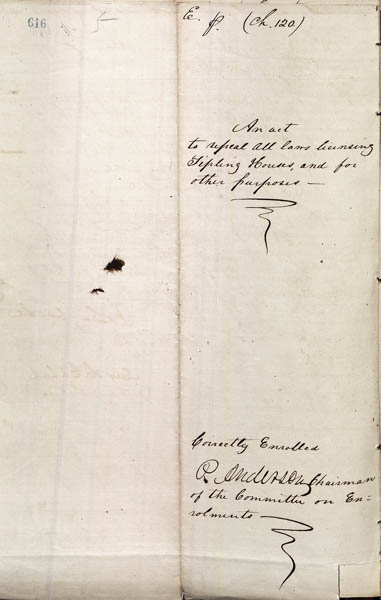 616
5
E. p. (Ch. 120.)
An act
to repeal all laws licensing
Tipling Houses, and for
other purposes —
Correctly Enrolled
R Anderson, Chairman
of the Committee on En-
rolments —